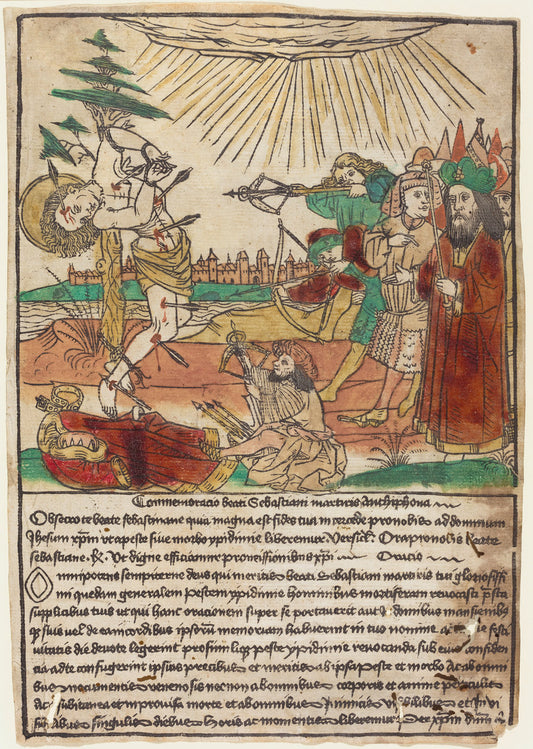 Commemoracio beati Sebastiani martiris Anthiphona
Obsecro te beate sebastiane quia magna est fides tua intercede pro nobis ad dominum
Jhesum xpm ut a peste sive morbo ypidimie liberemur. Versicl' Ora pro nobis beate
sebastiane. R. Ut digne efficiamur promissionibus xpi Oracio
Omnipotens sempiterne deus qui meritis beati Sebastiani martiris tui gloriosissi
mi quedam generalem pestem ypidimie hominibus mortiferam revocasti psta
supplicibus tuis ut qui hanc oracionem super se portaverit aut domibus
memoriam habuerint in tuo nomine festi
vitatis die devote legerint peste ypidimie revocanda sub eius confiden
cia ad te confugerint ipsius precibus et meritis ab ipsa peste et morbo Ac ab omni
bus nocumentis venenosis necnon ab omnibus corporis et anime periculis
Ac subitanea et improvisa morte et ab omnibus Inimicis visibilibus et invi
sibilibus singulis diebus Horis ac momentis liberemur Per xpm dnm